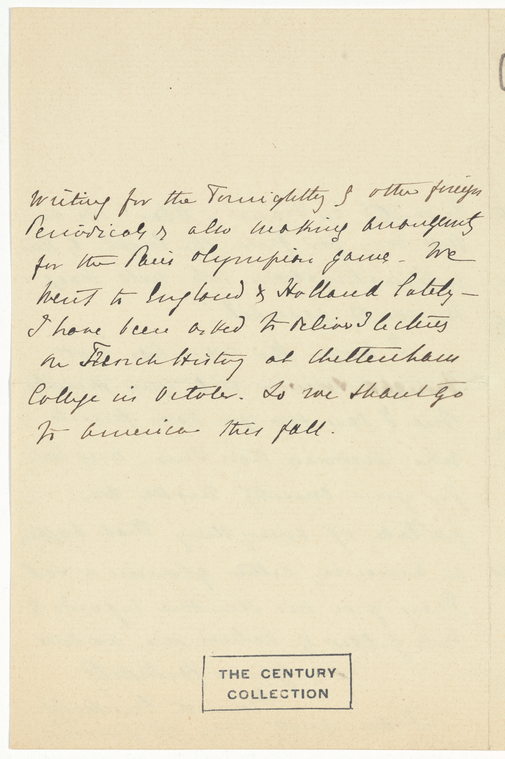 writing for the Fornightly & other foreign
Periodicals & also making arrangements
for the Paris Olympian games – We
went to England & Holland lately –
I have been asked to deliver 3 lectures
on French History at Cheltenham
College in October. So we shant go
to America this fall.
THE CENTURY
COLLECTION